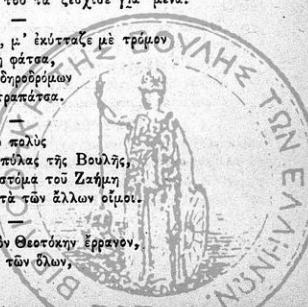 του τα ζεσχισε για μένα.
—
, μ' ἐκύτταζε μὲ τρόμον
φάτσα,
δηροδρόμων
τραπάτσα.
—
πολὺς
πύλας τῆς Βουλῆς,
στόμα τοῦ Ζαήμη
τὰ τῶν ἄλλων οἴμοι.
—
Θεοτόκην ἔρρανον,
τῶν ὅλων,
ΒΟΥΛΗΣ ΤΩΝ ΕΛΛΗΝΩΝ